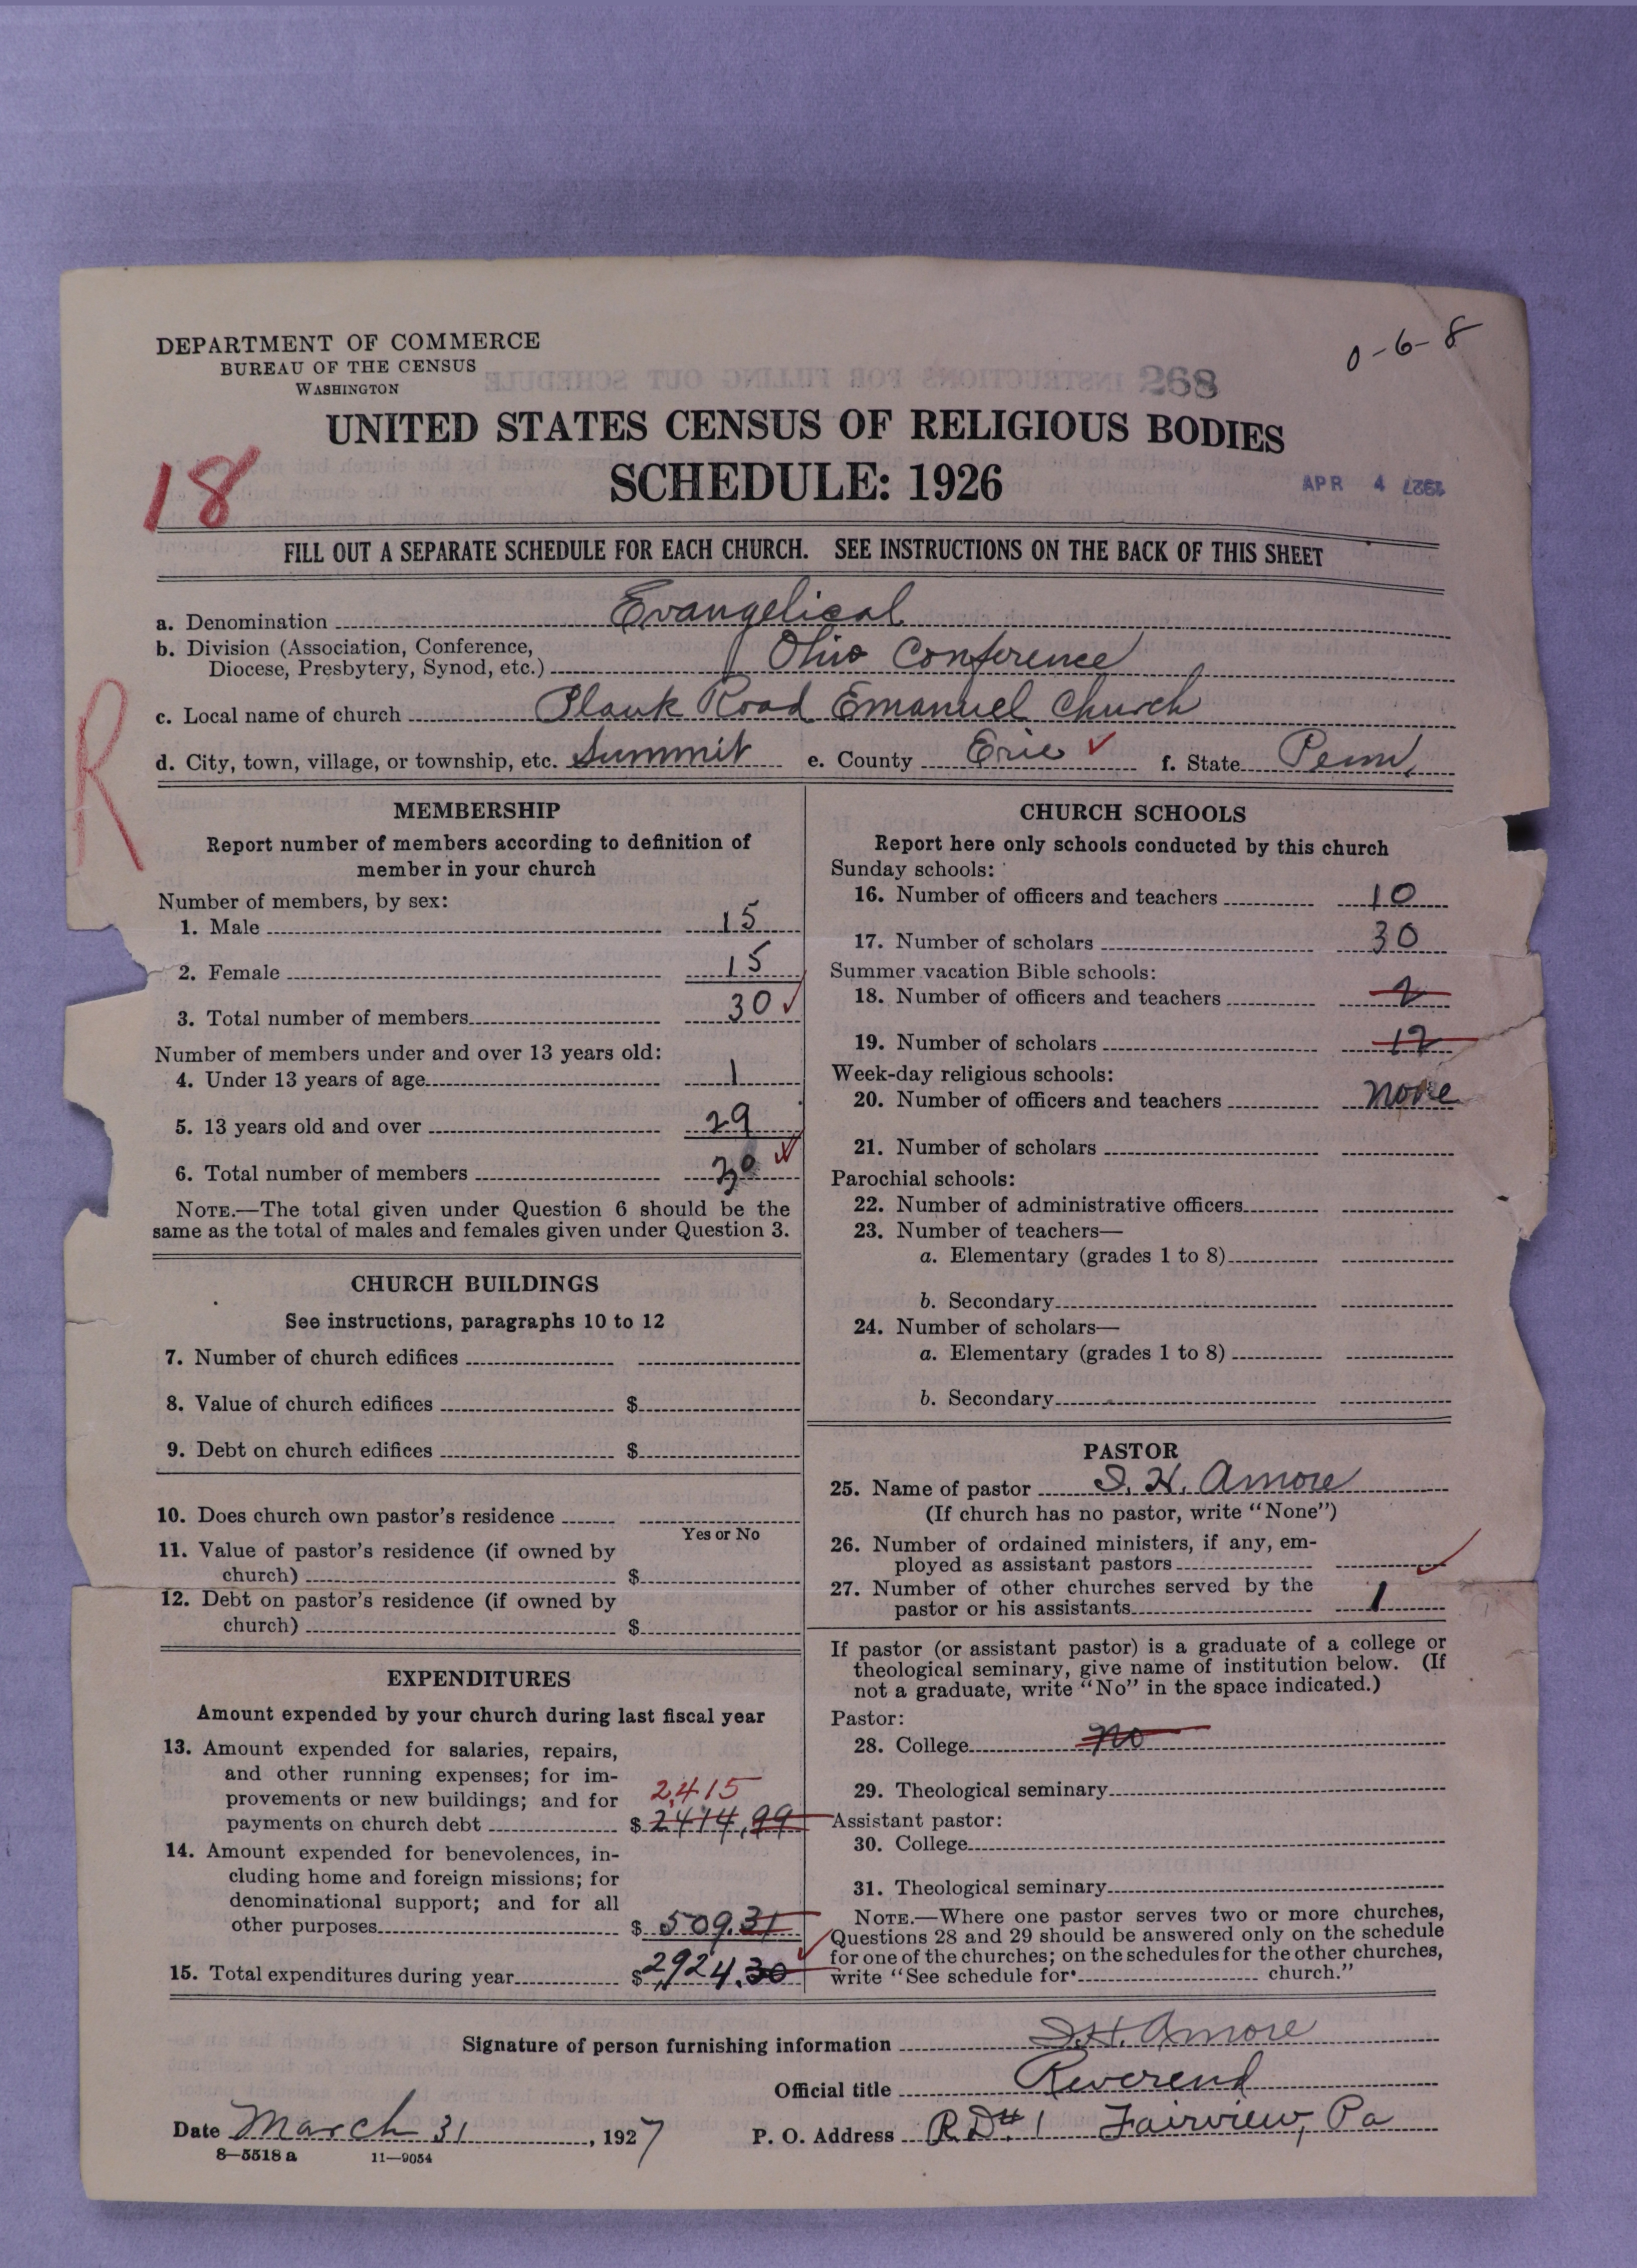 DEPARTMENT OF COMMERCE
BUREAU OF THE CENSUS
WASHINGTON
0-6-8
268
UNITED STATES CENSUS OF RELIGIOUS BODIES
SCHEDULE: 1926
18
APR 4 1927
FILL OUT A SEPARATE SCHEDULE FOR EACH CHURCH. SEE INSTRUCTIONS ON THE BACK OF THIS SHEET
a. Denomination Evangelical
b. Division (Association, Conference,
Diocese, Presbytery, Synod, etc.) Ohio Conference
c. Local name of church Plank Road Emanuel Church
d. City, town, village, or township, etc. Summit e. County Erie ✓ f. State Penn,
R
MEMBERSHIP
Report number of members according to definition of
member in your church
Number of members, by sex:
1. Male 15
2. Female 15
3. Total number of members 30 ✓
Number of members under and over 13 years old:
4. Under 13 years of age 1
5. 13 years old and over 29
6. Total number of members 30 ✓
NOTE.—The total given under Question 6 should be the
same as the total of males and females given under Question 3.
CHURCH BUILDINGS
See instructions, paragraphs 10 to 12
7. Number of church edifices
8. Value of church edifices $
9. Debt on church edifices $
10. Does church own pastor's residence
Yes or No
11. Value of pastor's residence (if owned by
church) $
12. Debt on pastor's residence (if owned by
church) $
EXPENDITURES
Amount expended by your church during last fiscal year
13. Amount expended for salaries, repairs,
and other running expenses; for im-
provements or new buildings; and for 2,415
payments on church debt $ 2414.99
14. Amount expended for benevolences, in-
cluding home and foreign missions; for
denominational support; and for all
other purposes $ 509.31
15. Total expenditures during year $ 2,924.30
CHURCH SCHOOLS
Report here only schools conducted by this church
Sunday schools:
16. Number of officers and teachers 10
17. Number of scholars 30
Summer vacation Bible schools:
18. Number of officers and teachers 2
19. Number of scholars 12
Week-day religious schools:
20. Number of officers and teachers none
21. Number of scholars
Parochial schools:
22. Number of administrative officers
23. Number of teachers—
a. Elementary (grades 1 to 8)
b. Secondary
24. Number of scholars—
a. Elementary (grades 1 to 8)
b. Secondary
PASTOR
25. Name of pastor I. H. Amore
(If church has no pastor, write "None")
26. Number of ordained ministers, if any, em-
ployed as assistant pastors ✓
27. Number of other churches served by the
pastor or his assistants 1
If pastor (or assistant pastor) is a graduate of a college or
theological seminary, give name of institution below. (If
not a graduate, write "No" in the space indicated.)
Pastor:
28. College no
29. Theological seminary
Assistant pastor:
30. College
31. Theological seminary
NOTE.—Where one pastor serves two or more churches,
Questions 28 and 29 should be answered only on the schedule
for one of the churches; on the schedules for the other churches,
write "See schedule for church."
Signature of person furnishing information I. H. Amore
Official title Reverend
Date March 31, 1927 P. O. Address R.D.# 1 Fairview, Pa
8—5518 a 11—9054